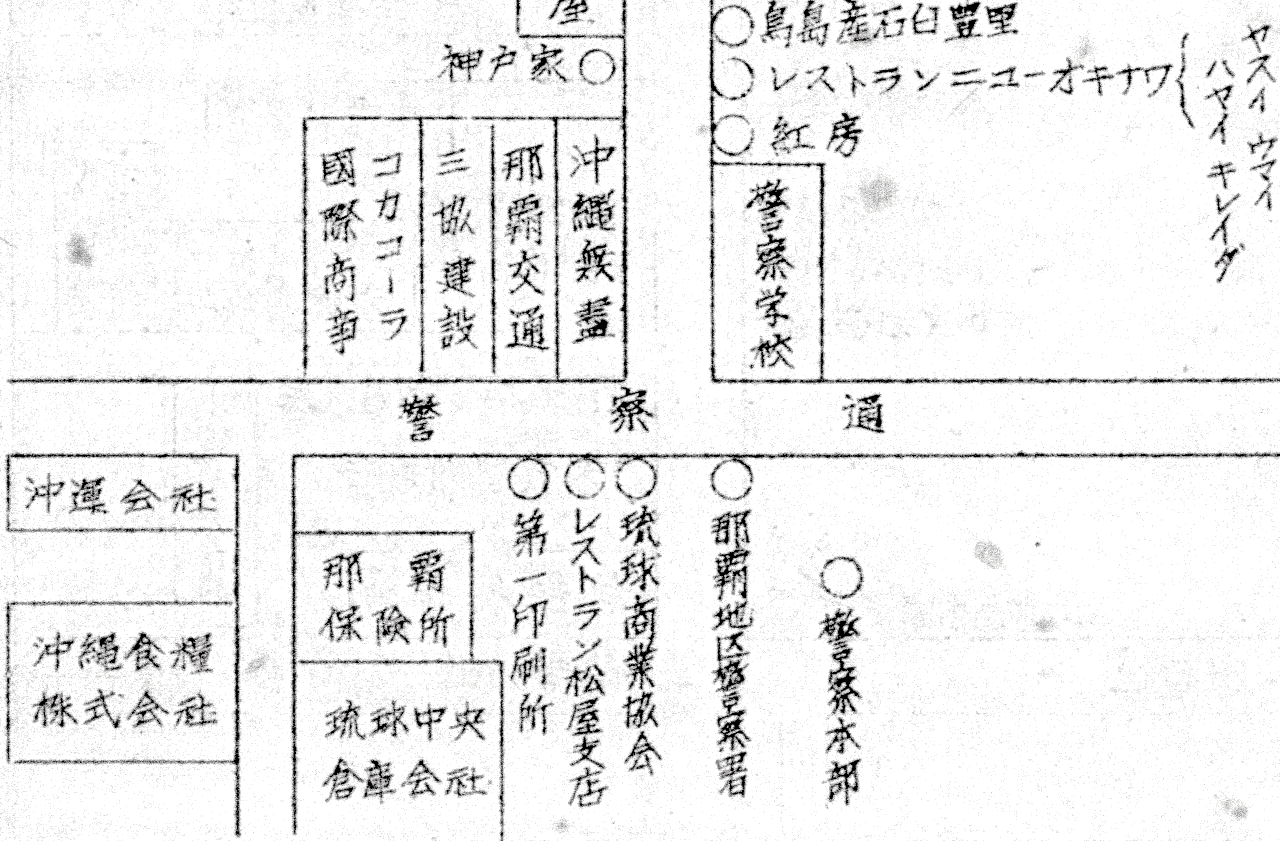 屋
神戸家
鳥島産石臼豊里
レストランニューオキナワ
ヤスイ ウマイ
ハヤイ キレイダ
紅房
沖縄無盡
那覇交通
三協建設
コカコーラ
國際商事
警察学校
警察通
沖運会社
沖縄食糧
株式会社
那覇
保険所
琉球中央
倉庫会社
第一印刷所
レストラン松屋支店
琉球商業協会
那覇地区警察署
警察本部